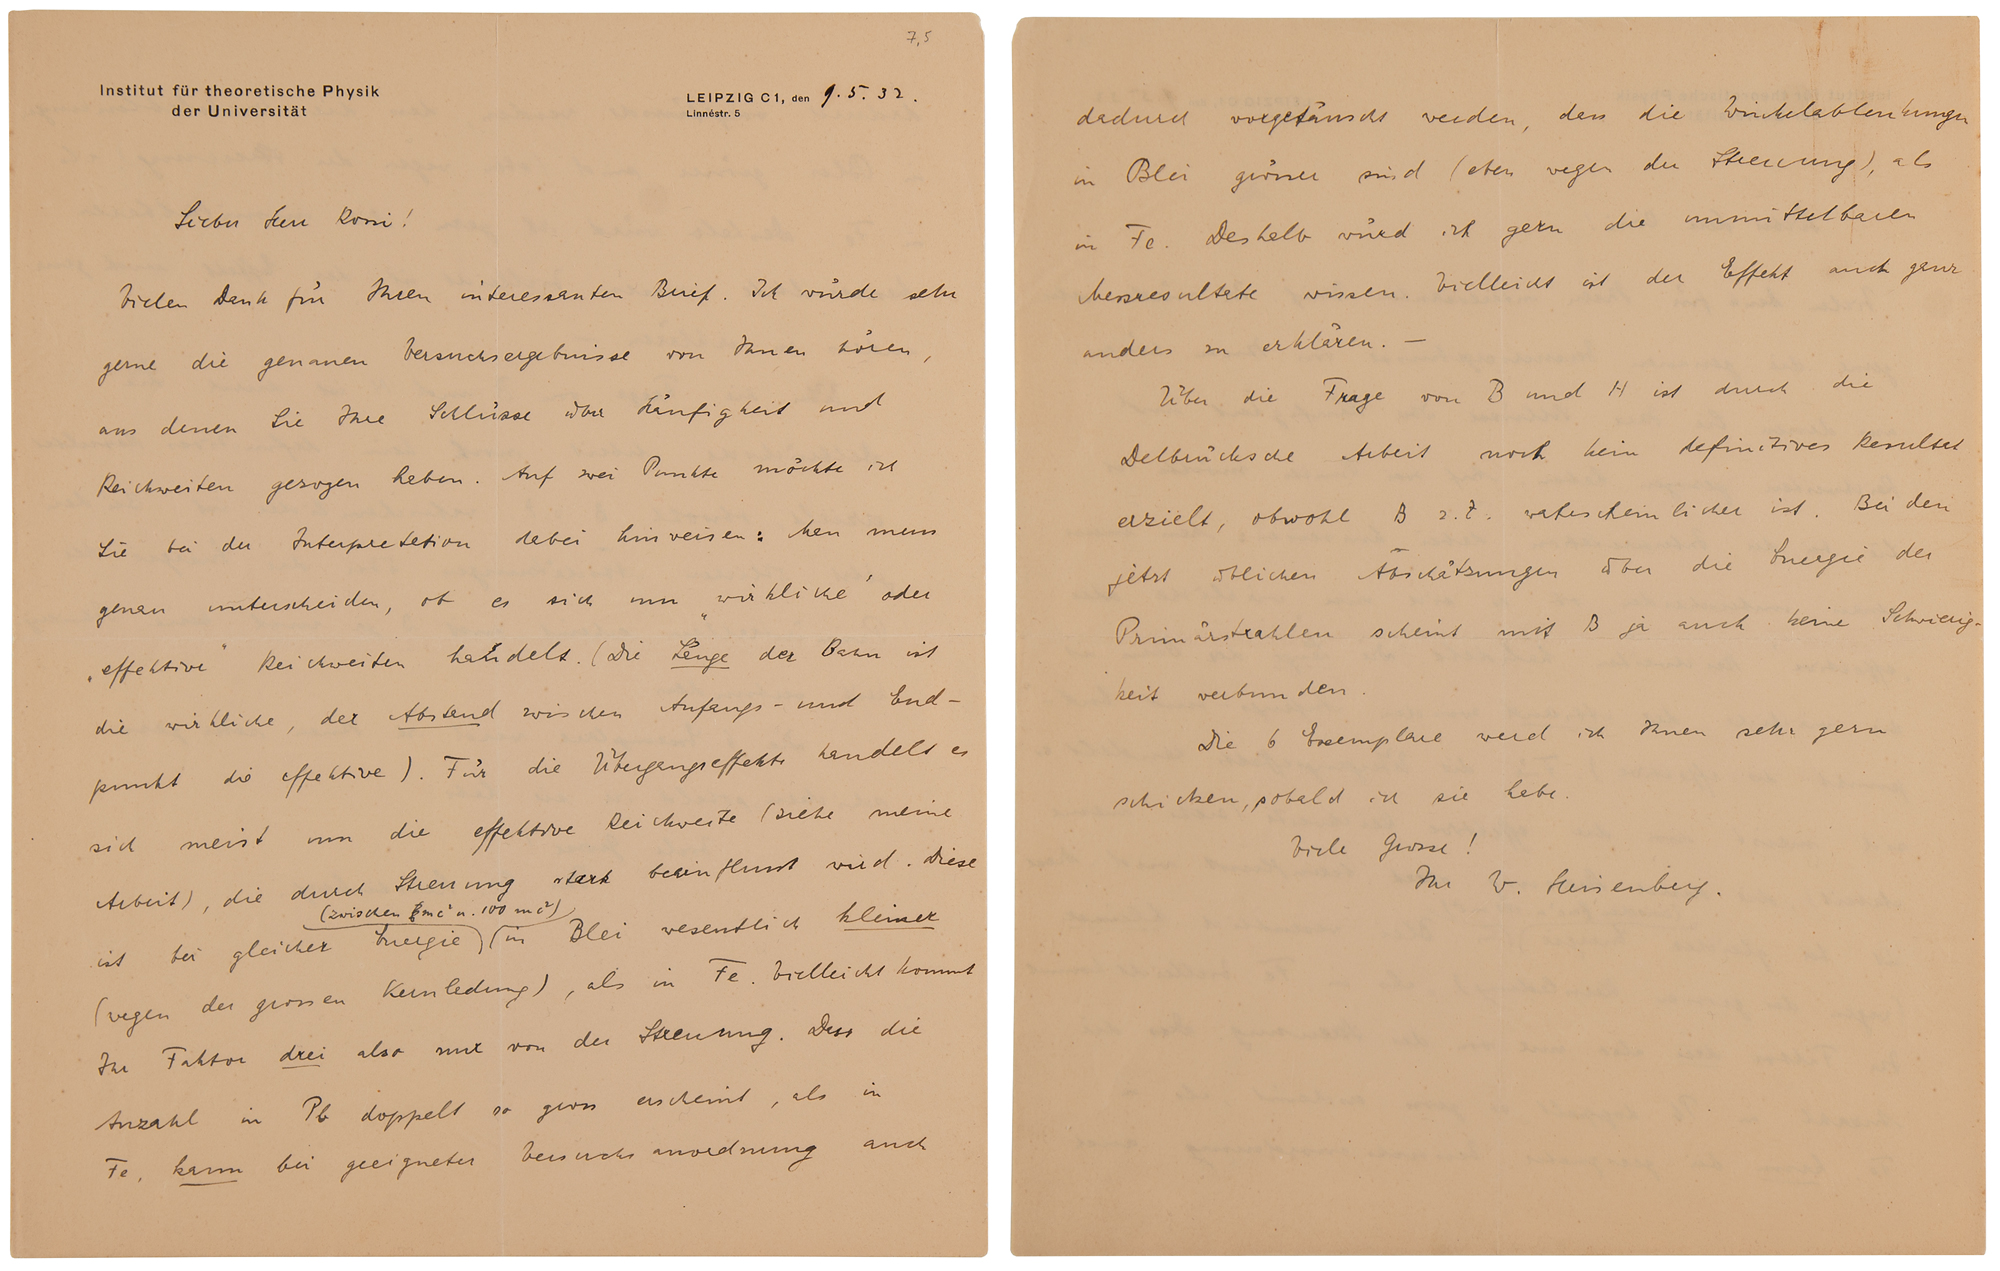 7,5
Institut für theoretische Physik
der Universität
LEIPZIG C1, den 9.5.32.
Linnéstr. 5
Lieber Herr Rossi!
Vielen Dank für Ihren interessanten Brief. Ich würde sehr
gerne die genauen Versuchsergebnisse von Ihnen hören,
aus denen Sie Ihre Schlüsse über Häufigkeit und
Reichweiten gezogen haben. Auf zwei Punkte möchte ich
Sie bei der Interpretation dabei hinweisen: Man muss
genau unterscheiden, ob es sich um „wirkliche" oder
„effektive" Reichweiten handelt. (Die Länge der Bahn ist
die wirkliche, der Abstand zwischen Anfangs- und End-
punkt die effektive). Für die Übergangseffekte handelt es
sich meist um die effektive Reichweite (siehe meine
Arbeit), die durch Streuung stark beeinflusst wird. Diese
(zwischen mc² u. 100 mc²)
ist bei gleicher Energie in Blei wesentlich kleiner
(wegen der grossen Kernladung), als in Fe. Vielleicht kommt
Ihr Faktor drei also nur von der Streuung. Dass die
Anzahl in Pb doppelt so gross erscheint, als in
Fe, kann bei geeigneter Versuchsanordnung auch
dadurch vorgetäuscht werden, dass die Winkelablenkungen
in Blei grösser sind (eben wegen der Streuung), als
in Fe. Deshalb würd ich gern die unmittelbaren
Messresultate wissen. Vielleicht ist der Effekt auch ganz
anders zu erklären. —
Über die Frage von B und H ist durch die
Delbrücksche Arbeit noch kein definitives Resultat
erzielt, obwohl B z.Z. wahrscheinlicher ist. Bei den
jetzt üblichen Abschätzungen über die Energie der
Primärstrahlen scheint mit B ja auch keine Schwierig-
keit verbunden.
Die 6 Exemplare werd ich Ihnen sehr gern
schicken, sobald ich sie habe.
Viele Grüsse!
Ihr W. Heisenberg.